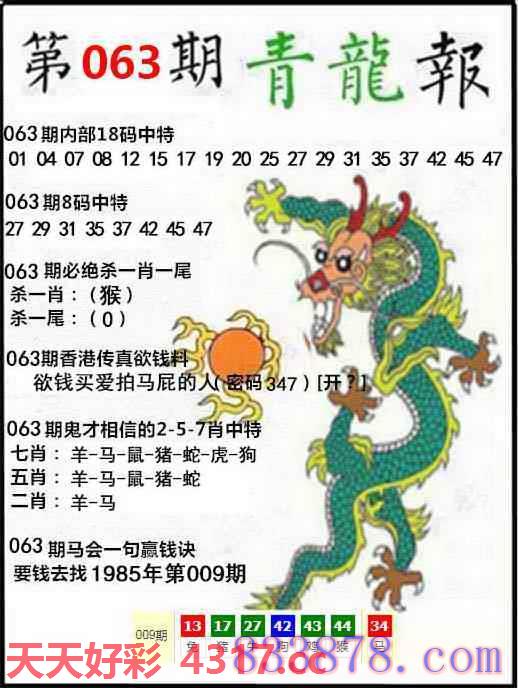 第063期青龍報
063期内部18码中特
01 04 07 08 12 15 17 19 20 25 27 29 31 35 37 42 45 47
063期8码中特
27 29 31 35 37 42 45 47
063期必绝杀一肖一尾
杀一肖：（猴）
杀一尾：（0）
063期香港传真欲钱料
欲钱买爱拍马屁的人(密码347)[开?]
063期鬼才相信的2-5-7肖中特
七肖：羊-马-鼠-猪-蛇-虎-狗
五肖：羊-马-鼠-猪-蛇
二肖：羊-马
063期马会一句赢钱诀
要钱去找1985年第009期
009期 13 17 27 42 43 44 34
兔 猪 牛 狗 鸡 猴 马
天天好彩 4317.cc
838878.com